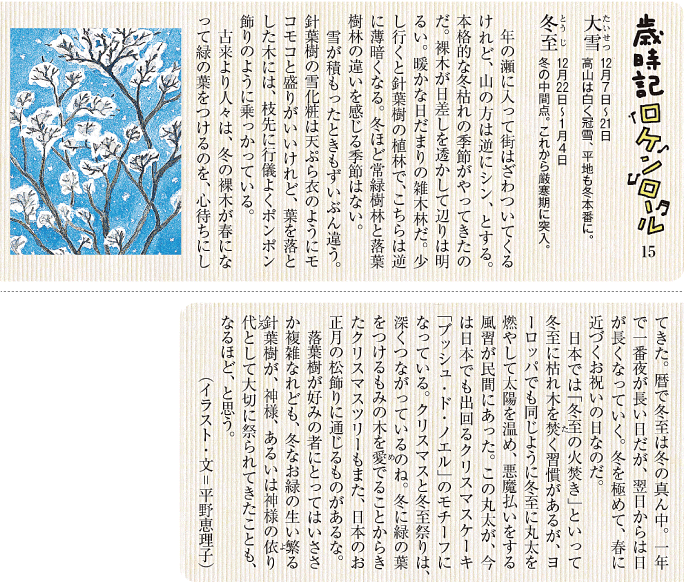 歳時記ロケンロール 15
大雪 12月7日〜21日
たいせつ
高山は白く冠雪、平地も冬本番に。
冬至 12月22日〜1月4日
とうじ
冬の中間点。これから厳寒期に突入。
年の瀬に入って街はざわついてくる
けれど、山の方は逆にシン、とする。
本格的な冬枯れの季節がやってきたの
だ。裸木が日差しを透かして辺りは明
るい。暖かな日だまりの雑木林だ。少
し行くと針葉樹の植林で、こちらは逆
に薄暗くなる。冬ほど常緑樹林と落葉
樹林の違いを感じる季節はない。
雪が積もったときもずいぶん違う。
針葉樹の雪化粧は天ぷら衣のようにモ
コモコと盛りがいいけれど、葉を落と
した木には、枝先に行儀よくポンポン
飾りのように乗っかっている。
古来より人々は、冬の裸木が春にな
って緑の葉をつけるのを、心待ちにし
てきた。暦で冬至は冬の真ん中。一年
で一番夜が長い日だが、翌日からは日
が長くなっていく。冬を極めて、春に
近づくお祝いの日なのだ。
日本では「冬至の火焚き」といって
冬至に枯れ木を焚く習慣があるが、ヨ
た
ーロッパでも同じように冬至に丸太を
燃やして太陽を温め、悪魔払いをする
風習が民間にあった。この丸太が、今
は日本でも出回るクリスマスケーキ
「ブッシュ・ド・ノエル」のモチーフに
なっている。クリスマスと冬至祭りは、
深くつながっているのね。冬に緑の葉
をつけるもみの木を愛でることからき
め
たクリスマスツリーもまた、日本のお
正月の松飾りに通じるものがあるな。
落葉樹が好みの者にとってはいささ
か複雑なれども、冬なお緑の生い繁る
針葉樹が、神様、あるいは神様の依り
よ
代として大切に祭られてきたことも、
しろ
なるほど、と思う。
（イラスト・文＝平野恵理子）